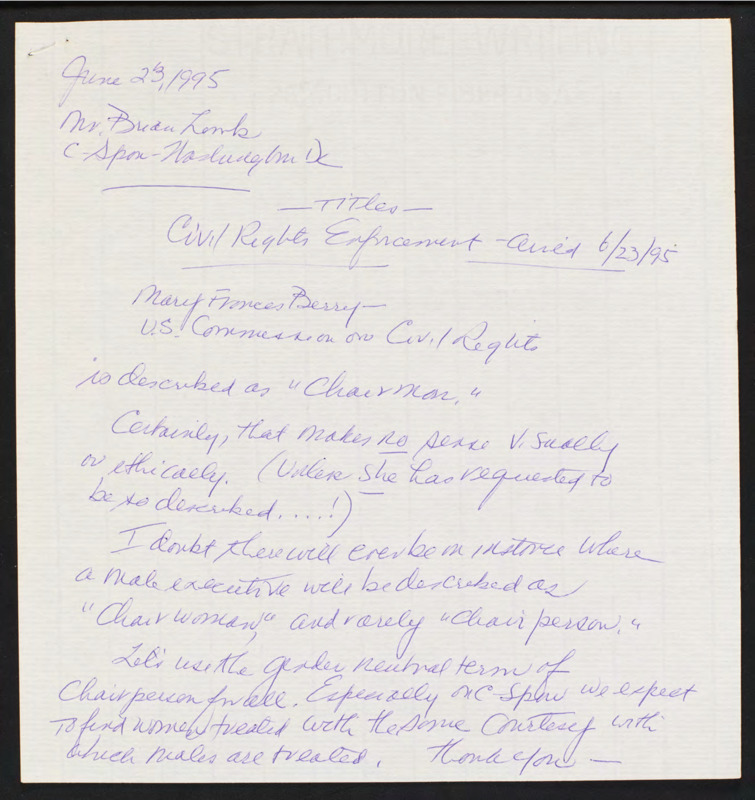 June 23, 1995
Mr. Brian Lamb
C-Span - Washington DC
— Titles —
Civil Rights Enforcement - aired 6/23/95
Mary Frances Berry —
U.S. Commission on Civil Rights
is described as "Chairman."
Certainly, that makes no sense visually
or ethically. (Unless she has requested to
be so described.....!)
I doubt there will ever be an instance where
a male executive will be described as
"Chairwoman," and rarely "Chairperson."
Let's use the gender neutral term of
Chairperson for all. Especially on C-Span we expect
to find women treated with the same courtesy with
which males are treated. Thank you —